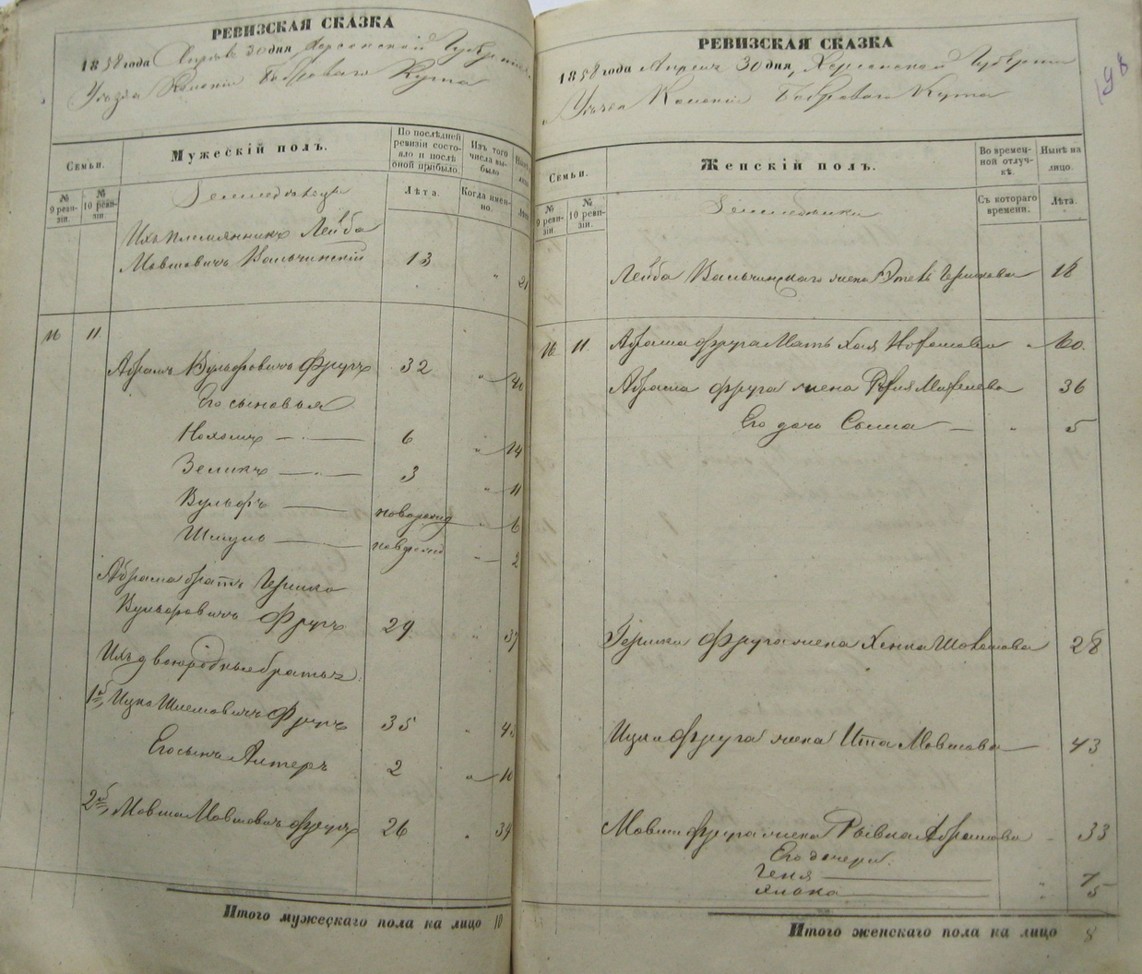 РЕВИЗСКАЯ СКАЗКА
1858 года Апреля 30 дня, Херсонской Губернии
Уезда Колонии Боброваго Кута
Семьи.
№ 9 ревизіи.
№ 10 ревизіи.
Мужескій полъ.
По послѣдней ревизіи состояло и послѣ оной прибыло.
Изъ того числа выбыло
Лѣта.
Когда именно.
Земледѣльцы
Ихъ племянникъ Лейба
Мовшовичъ Вальчинскій 13 " 21
16 11
Абрамъ Вульфовичъ Фругъ 32 "
Его сыновья
Нохомъ — " — 6 " 14
Зеликъ — " — 3 " 11
Вульфъ — новорожд " 6
Шмуль — новорожд " 2
Абрама братъ Гершко
Вульфовичъ Фругъ 29 " 37
Ихъ двоюродные братья
1й, Ицко Шлемовичъ Фругъ 35 "
Его сынъ Алтеръ 2 " 10
2й, Мовша Мовшовичъ Фругъ 26 "
Итого мужескаго пола на лицо 10
РЕВИЗСКАЯ СКАЗКА
1858 года Апреля 30 дня, Херсонской Губернии
Уезда Колонии Боброваго Кута
Семьи.
№ 9 ревизіи.
№ 10 ревизіи.
Женскій полъ.
Во временной отлучкѣ.
Нынѣ на лицо.
Съ котораго времени.
Лѣта.
Лейба Вальчинскаго жена Гершкова 18
16 11. Абрама Фруга Мать Хая " 60.
Абрама Фруга жена 36
Его дочь Сыма — " 5
Гершки Фруга жена Хенка 28
Ицки Фруга жена Ита Мовшова — 43
Мовши Фруга жена Рывка Абрамова 33
Его дочери.
Геня 7
5
Итого женскаго пола на лицо 8